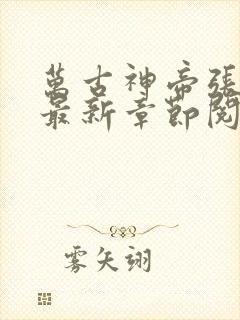 萬古神帝張
最新章節閱
雾矢翊